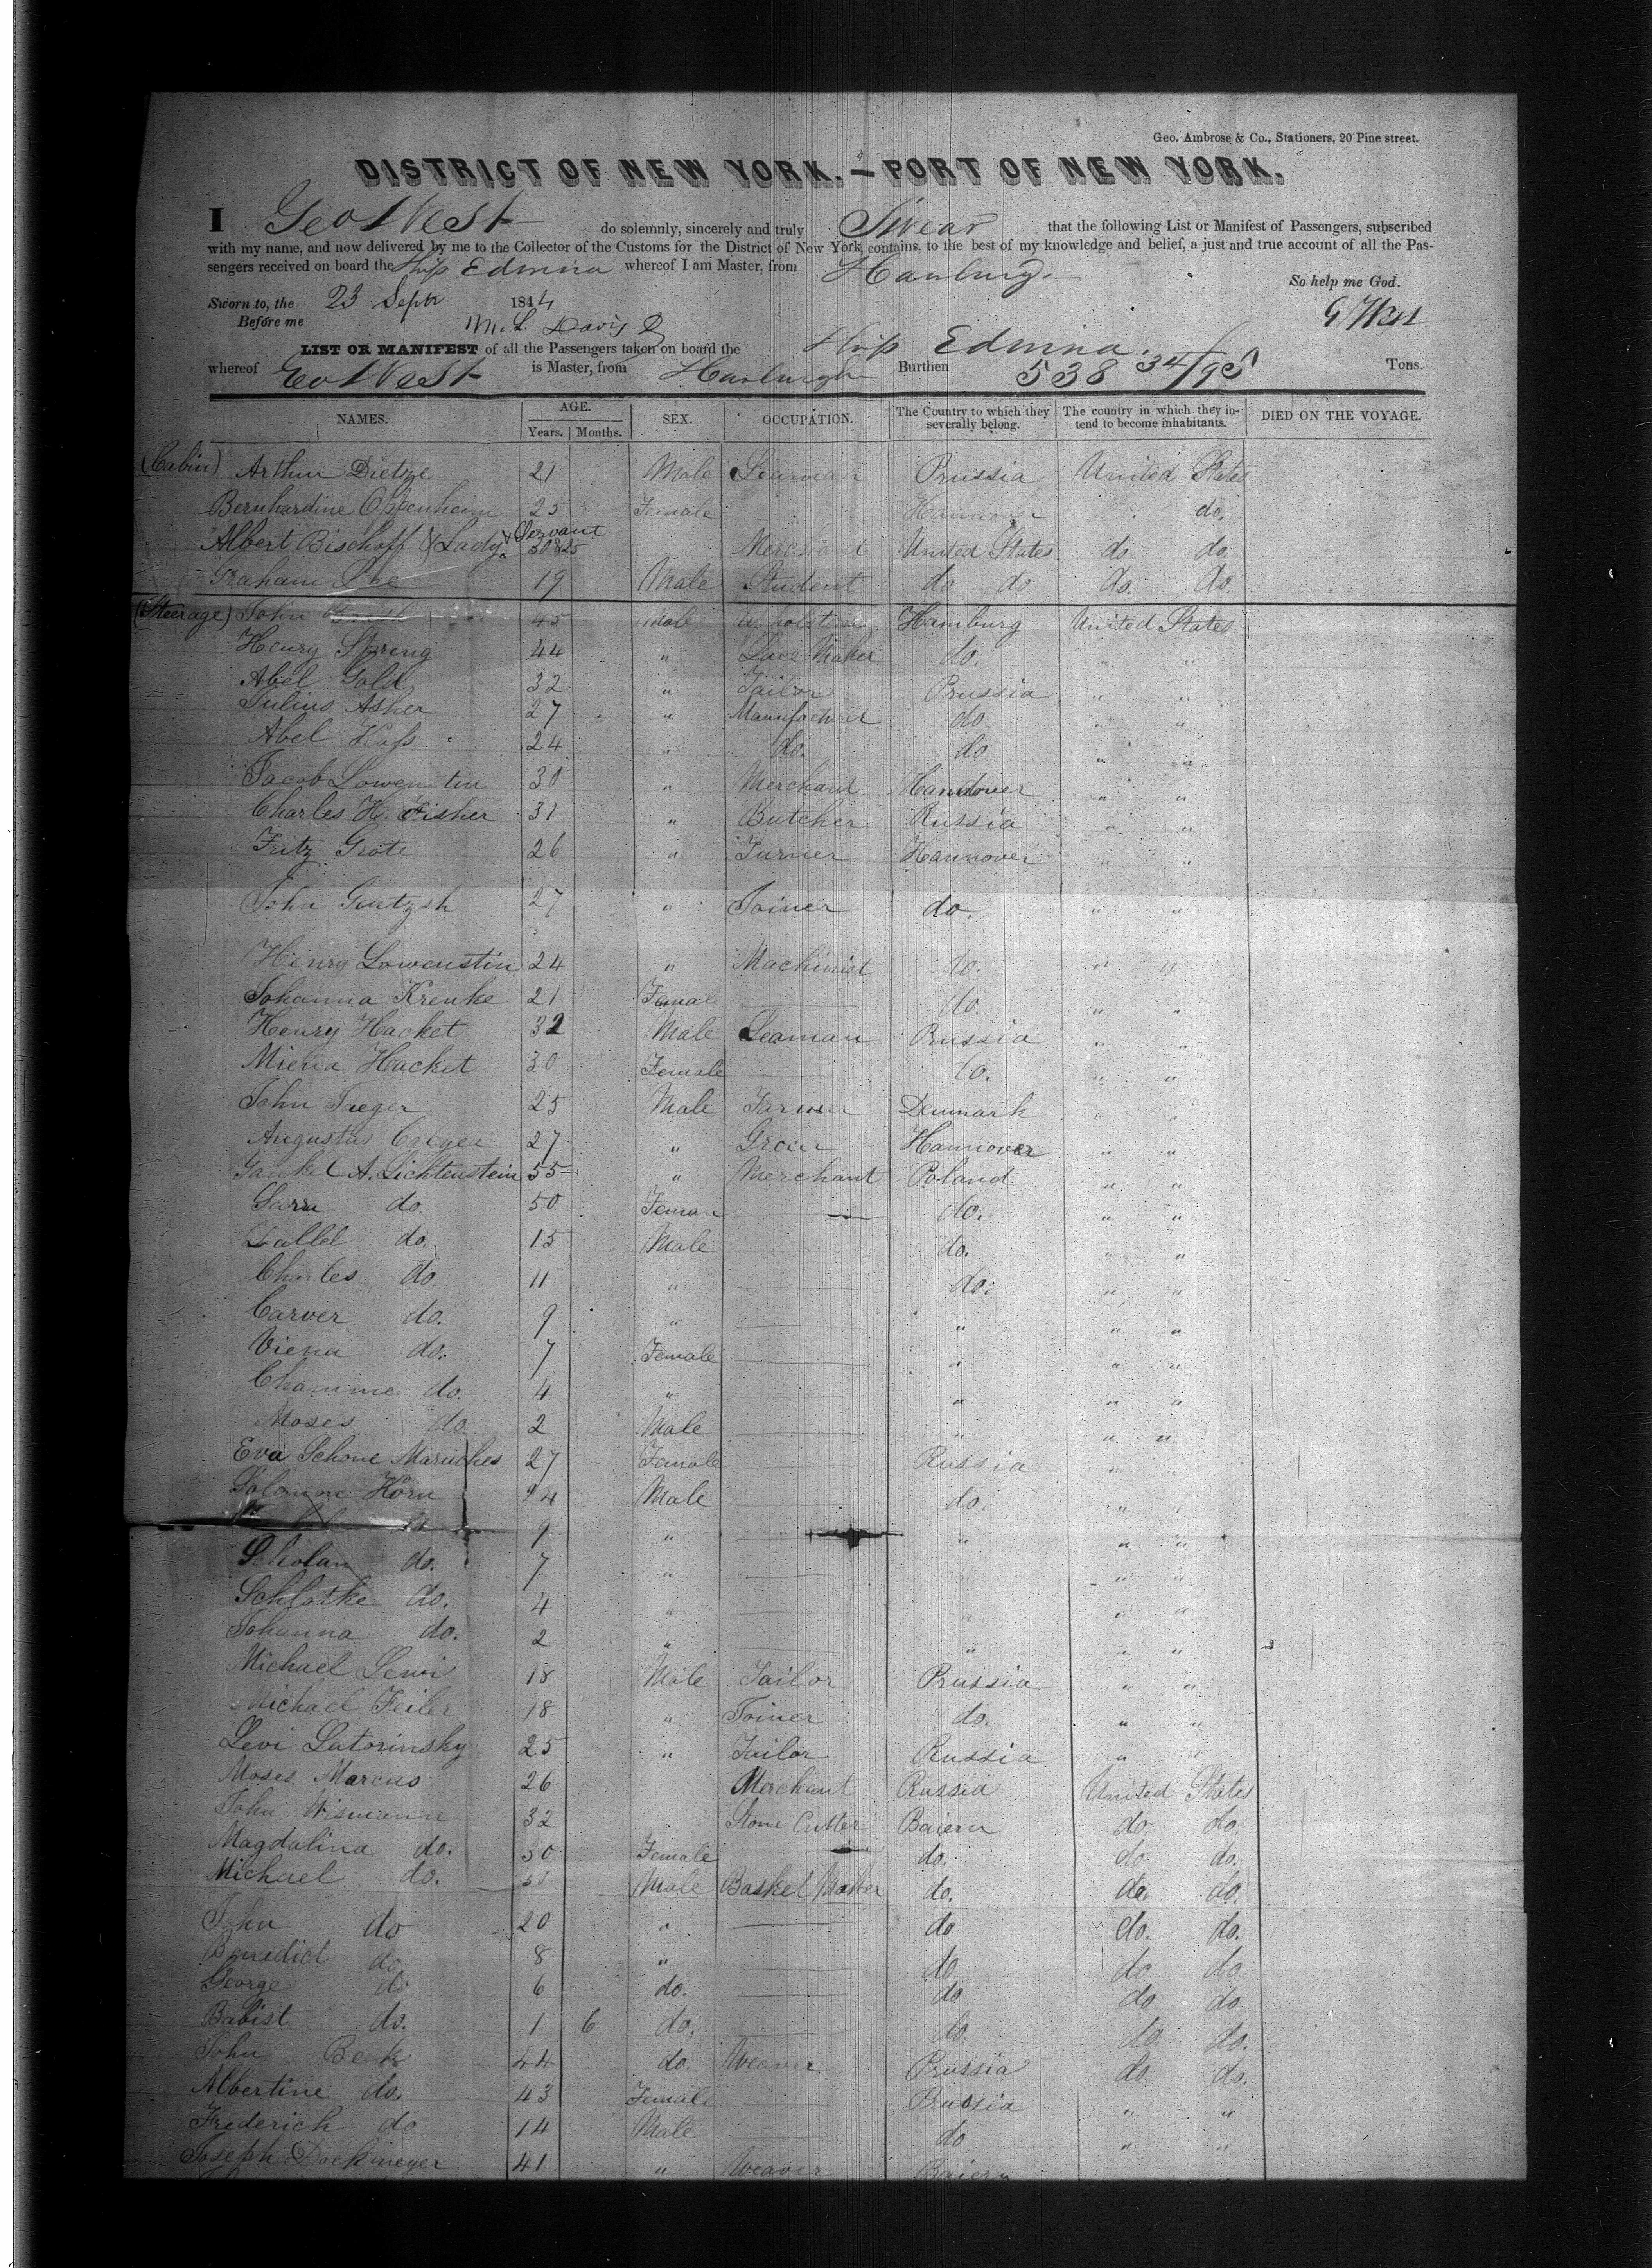 Geo. Ambrose & Co., Stationers, 20 Pine street.
DISTRICT OF NEW YORK.—PORT OF NEW YORK.
I Geo West do solemnly, sincerely and truly Swear that the following List or Manifest of Passengers, subscribed
with my name, and now delivered by me to the Collector of the Customs for the District of New York, contains, to the best of my knowledge and belief, a just and true account of all the Pas-
sengers received on board the Ship Edwina whereof I am Master, from Hamburg.
So help me God.
Sworn to, the 23 Sept 1844 G West
Before me M. L. Davis
LIST OR MANIFEST of all the Passengers taken on board the Ship Edwina.
whereof Geo West is Master, from Hamburgh Burthen 538 34/95 Tons.
NAMES. AGE. Years. Months. SEX. OCCUPATION. The Country to which they severally belong. The country in which they in-tend to become inhabitants. DIED ON THE VOYAGE.
(Cabin) Arthur Dietze 21 Male Seaman Prussia United States
Bernhardine Oppenheim 25 Female Hannover do.
Albert Bischoff & Lady & Servant 30 & 25 Merchant United States do. do.
Graham 19 Male Student do do do. do.
(Steerage) John 45 Male Hamburg United States
Henry Spreng 44 " Lace Maker do. " "
Abel Gold 32 " Tailor Prussia " "
Julius Asher 27 " Manufacturer do " "
Abel Hass 24 " do. do " "
Jacob Lowenstin 30 " Merchant Hannover " "
Charles H. Fisher 31 " Butcher Russia " "
Fritz Grote 26 " Turner Hannover " "
John Gentzsh 27 " Joiner do. " "
Henry Lowenstin 24 " Machinist do. " "
Johanna Krenke 21 Female do. " "
Henry Hacket 32 Male Seaman Prussia " "
Miena Hacket 30 Female do. " "
John Jaeger 25 Male Farmer Denmark " "
Augustus 27 " Hannover " "
Jankel A. Lichtenstein 55 " Merchant Poland " "
Sara do. 50 do. " "
Dallel do. 15 Male do. " "
Charles do. 11 " do. " "
Carver do. 9 " " " "
Viena do. 7 Female " " "
Chamme do. 4 " " " "
Moses do. 2 Male " " "
Eva Schone Maruches 27 Female Russia " "
Solomon Horn Male do. " "
9 " " " "
Scholan do. 7 " " " "
Schlotke do. 4 " " " "
Johanna do. 2 " " " "
Michael Lewi 18 Male Tailor Prussia " "
Michael Feiler 18 " Joiner do. " "
Levi Latorinsky 25 " Tailor Russia " "
Moses Marcus 26 Merchant Russia United States
John Wismann 32 Stone Cutter Baiern do. do.
Magdalina do. 30 Female do. do do.
Michael do. Male Basket Maker do. do. do.
John do 20 " do do. do.
Benedict do 8 " do do do
George do 6 do. do do do
Babist do. 1 6 do. do do. do.
John Benk 44 do. Weaver Prussia do. do.
Albertine do. 43 Female Prussia " "
Frederich do 14 Male do " "
Joseph Dockmeyer 41 " Weaver Baiern